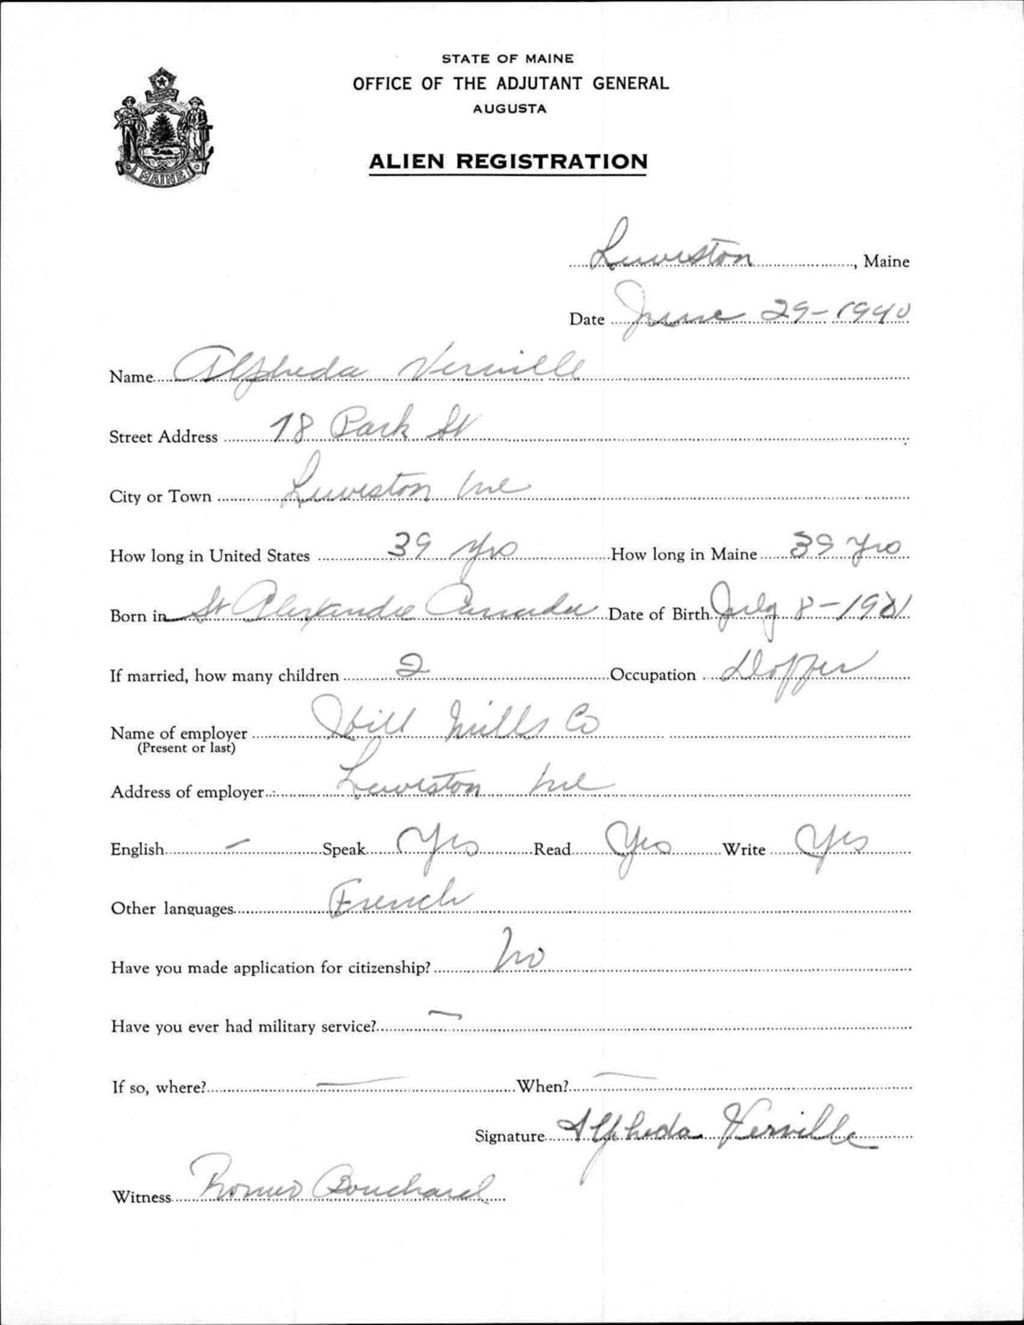 STATE OF MAINE
OFFICE OF THE ADJUTANT GENERAL
AUGUSTA
MAINE
ALIEN REGISTRATION
Lewiston, Maine
Date June 29-1940
Name Alpheda Verville
Street Address 18 Park St
City or Town Lewiston Me
How long in United States 39 yrs How long in Maine 39 yrs
Born in St Alexandre Canada Date of Birth July 8-1901
If married, how many children 2 Occupation Doffer
Name of employer Hill Mills Co
(Present or last)
Address of employer Lewiston Me
English - Speak Yes Read Yes Write Yes
Other languages French
Have you made application for citizenship? No
Have you ever had military service? -
If so, where? - When? -
Signature Alpheda Verville
Witness Romeo Bouchard